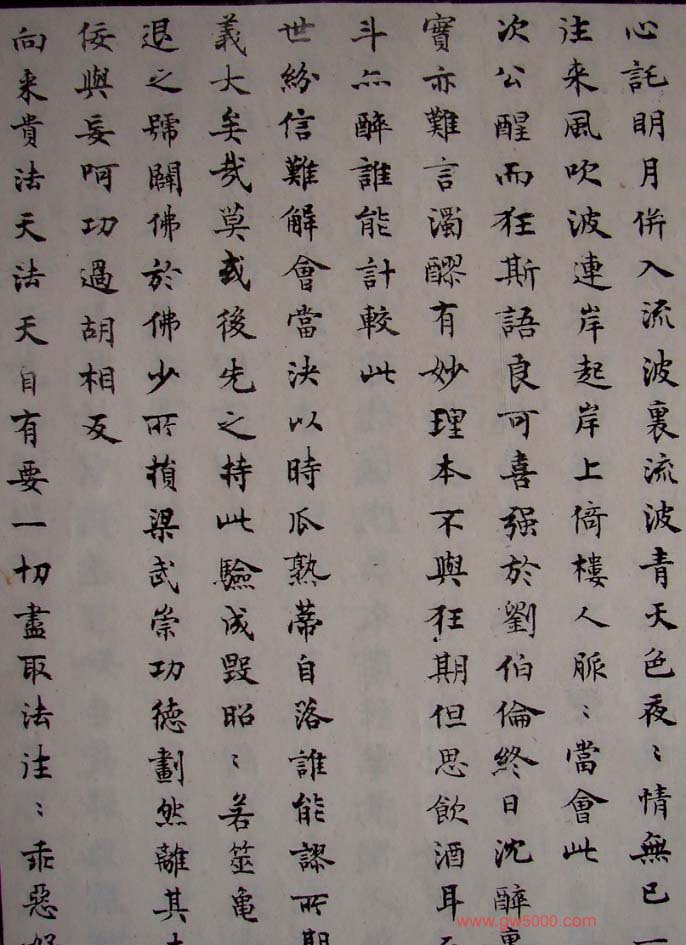 心託明月併入流波裏流波青天色夜〻情無已一
注来風吹波連岸起岸上倚樓人脈〻當會此
次公醒而狂斯語良可喜强於劉伯倫終日沈醉裏
實亦難言濁醪有妙理本不與狂期但思飲酒耳
斗亦醉誰能計較此
世紛信難解會當決以時瓜熟蒂自落誰能謬所期
義大矣哉莫或後先之持此驗成毀昭〻若筮亀
退之號闢佛於佛少所損梁武崇功德劃然離其
佞與妄呵功過胡相反
向来貴法天法天自有要一切盡取法注〻乖惡
www.gw5000.com